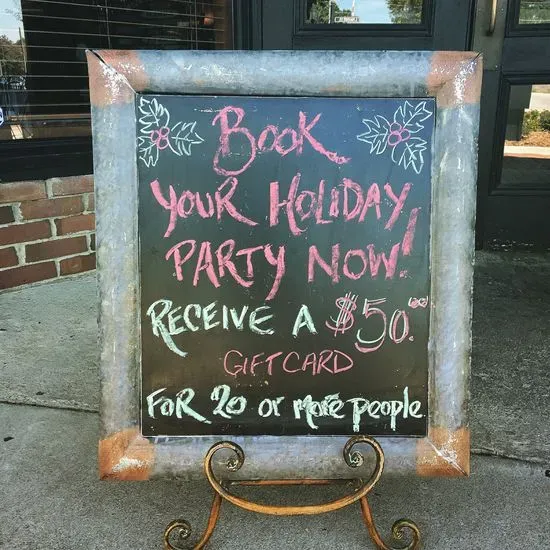 Book
YOUR HOLIDAY
PARTY NOW!
RECEIVE A $50.00
GIFT CARD
FOR 20 or more people